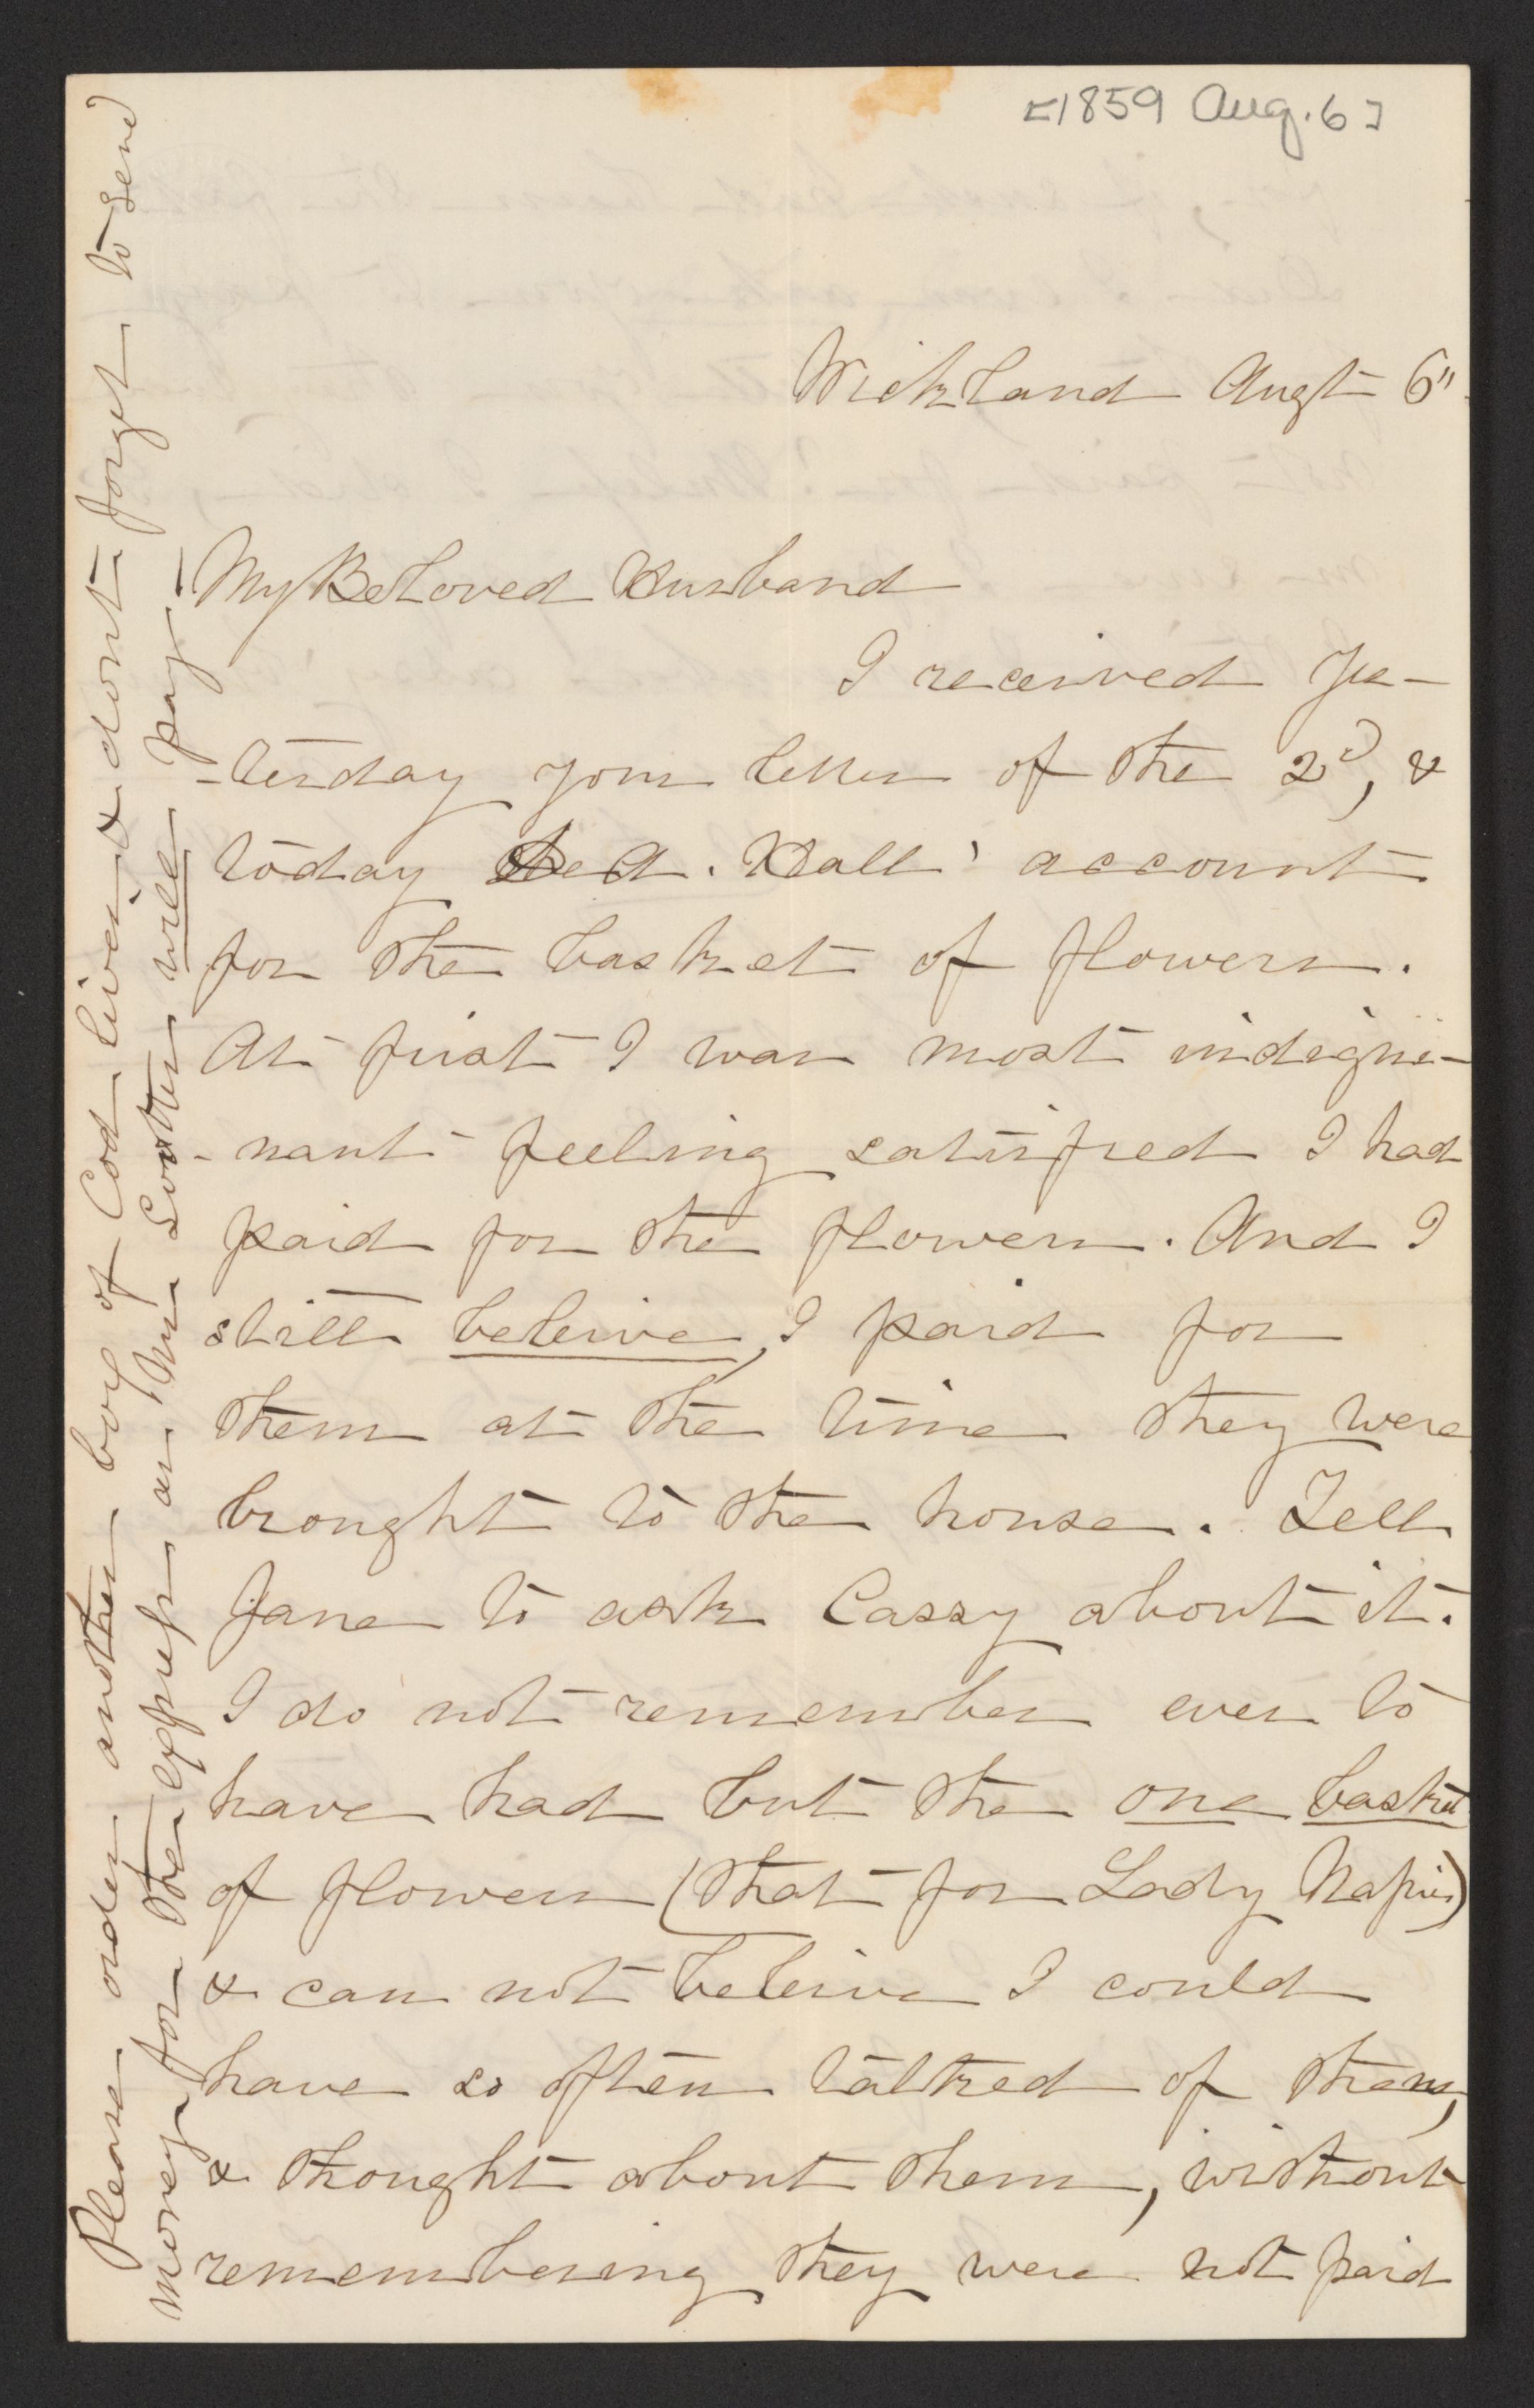 [1859 Aug. 6]
Wickland Augt 6"
My Beloved Husband
I received yes-
-terday your letter of the 2d, &
today A. Hall' account
for the basket of flowers.
At first I was most indig-
-nant feeling satisfied I had
paid for the flowers. And I
still beleive, I paid for
them at the time they were
brought to the house. Tell
Jane to ask Cassy about it.
I do not remember ever to
have had but the one basket
of flowers (that for Lady Napier)
& can not beleive I could
have so often talked of them,
& thought about them, without
remembering they were not paid
Please order another box of Cod liver & dont forget to send
money for the express as Mr will pay—